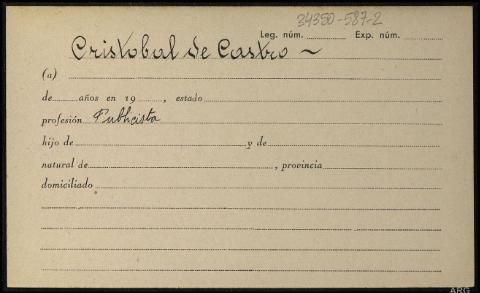 34350-587-2
Leg. núm. Exp. núm.
Cristobal de Castro ~
(a)
de años en 19 , estado
profesión Publicista
hijo de y de
natural de , provincia
domiciliado
ARG